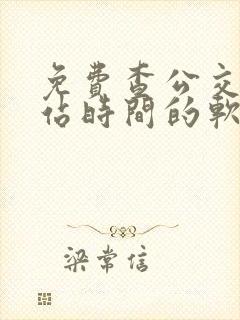 免費查公交
佔時間的軟
梁常信